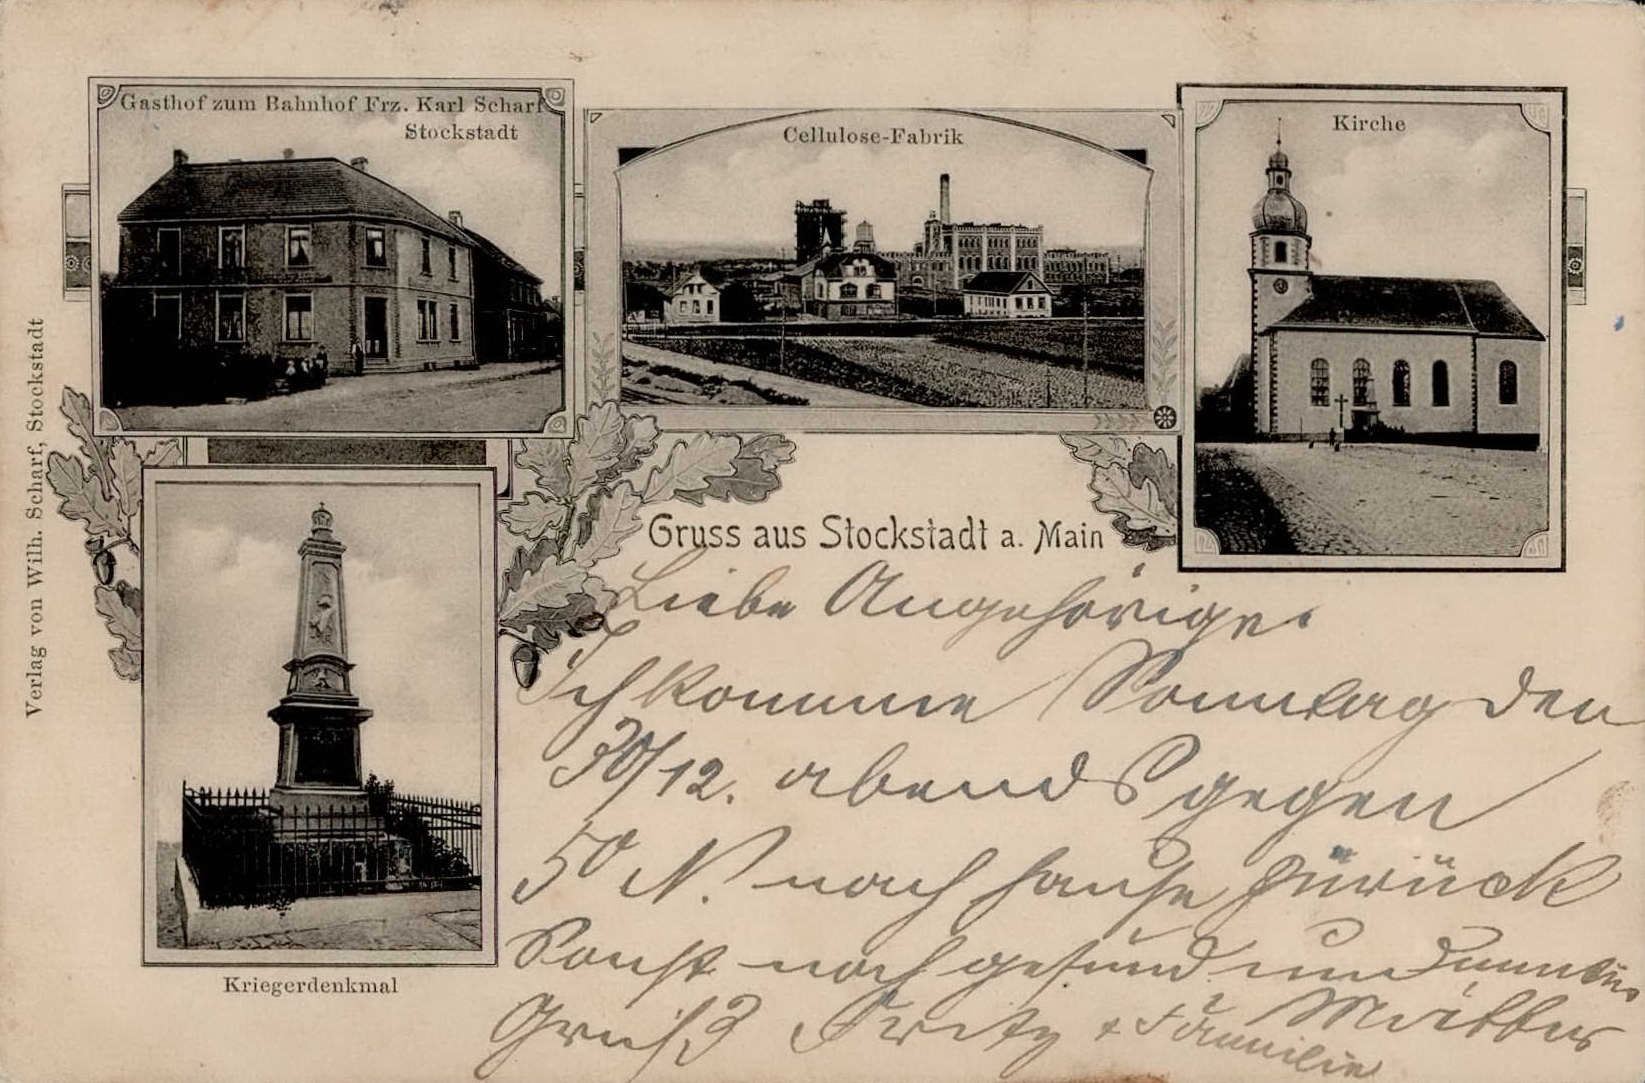 Gasthof zum Bahnhof Frz. Karl Scharf
Stockstadt
Cellulose-Fabrik
Kirche
Verlag von Wilh. Scharf, Stockstadt
Kriegerdenkmal
Gruss aus Stockstadt a. Main
Liebe Angehörige.
Ich komme Sonntag den
30/12. abends gegen
5º N. nach hause zurück
Sonst noch gesund und
Gruß Fritz + Familie